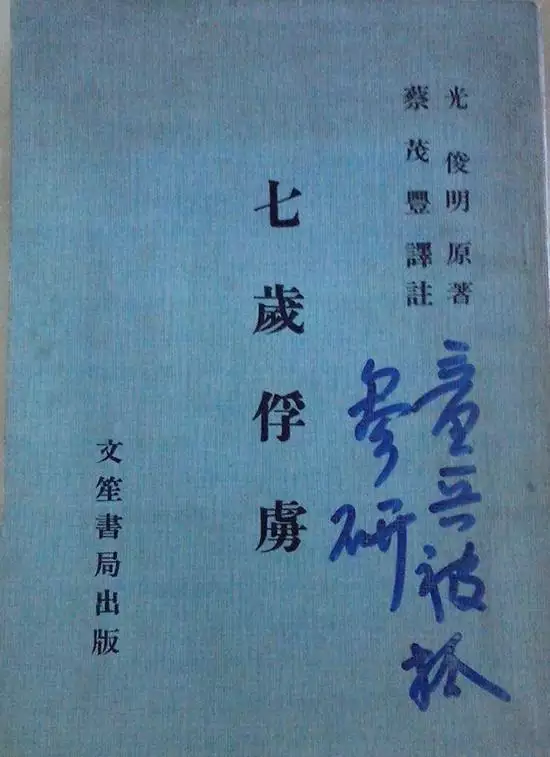 光俊明 原著
蔡茂豐 譯註
童兵被
参研
七歲俘虜
文笙書局出版